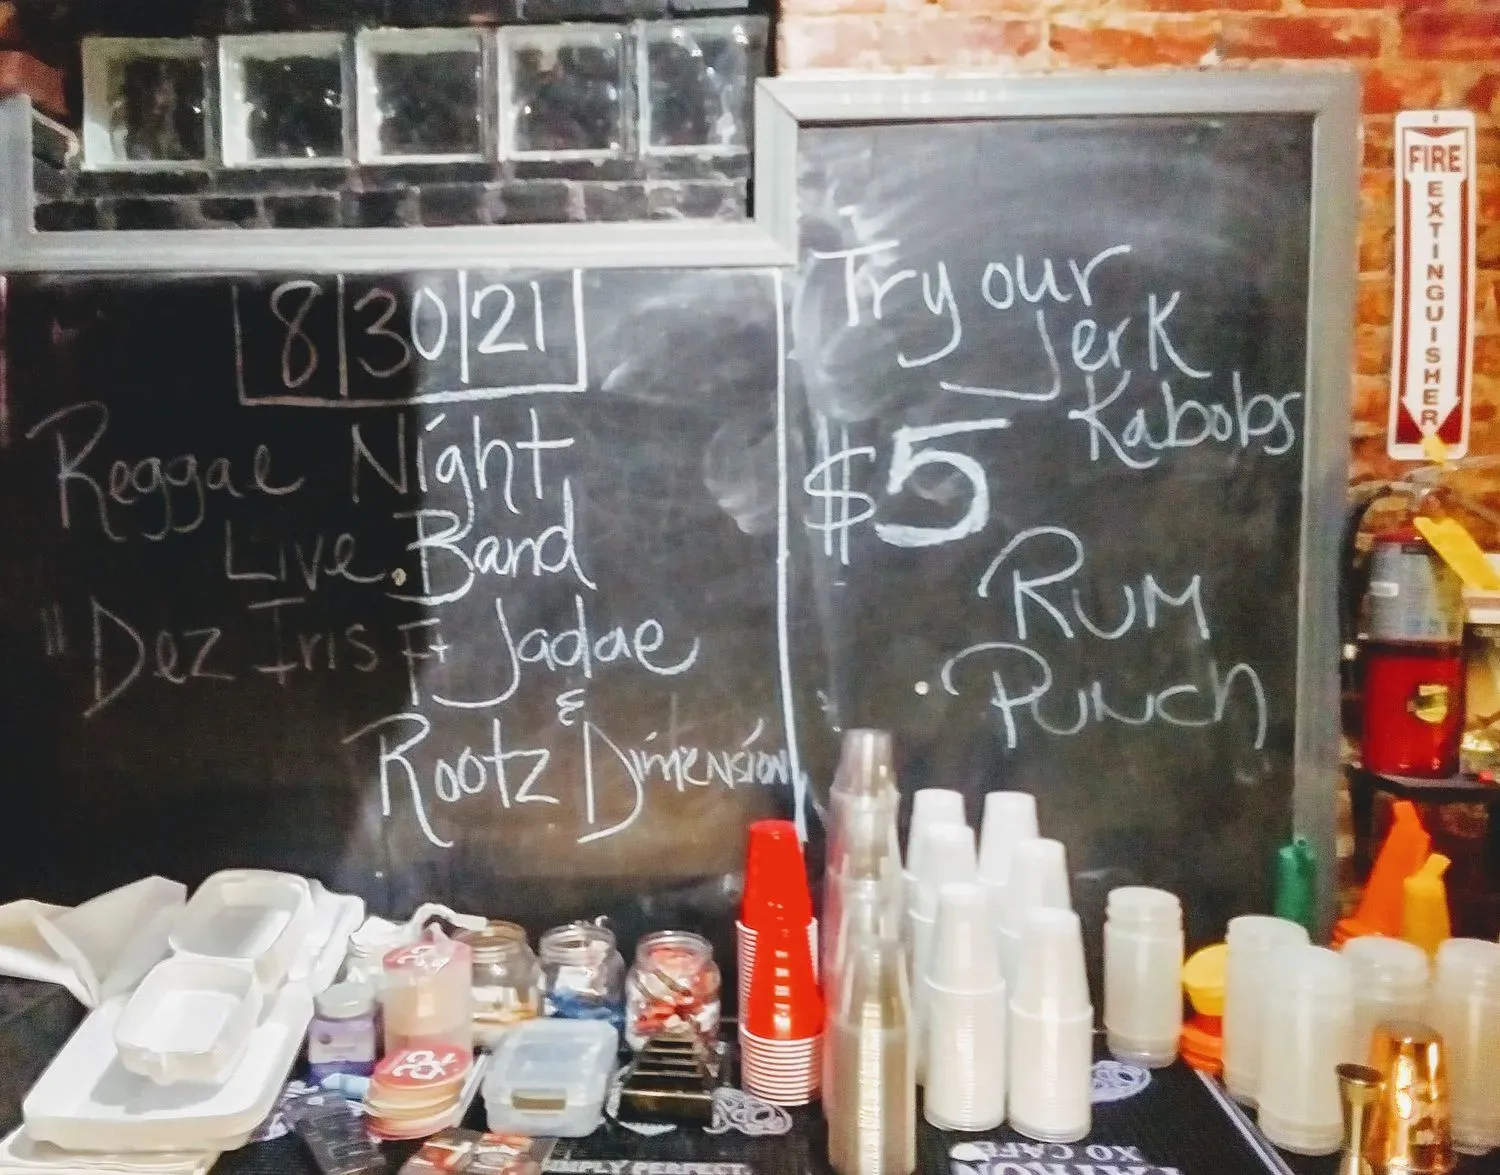 8|30|21
Reggae Night
Live Band
"Dez Iris Ft Jadae
&
Rootz Dimension
Try our
Jerk
Kabobs
$5
Rum
Punch
FIRE
EXTINGUISHER
SIMPLY PERFECT.
PATRON
XO CAFE